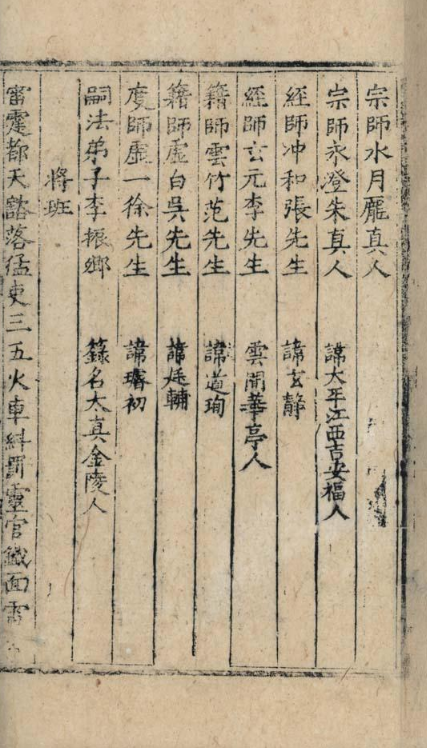 宗師水月龐真人
宗師永澄朱真人 諱大平江西吉安福人
經師冲和張先生 諱玄靜
經師玄元李先生 雲間華亭人
籍師雲竹范先生 諱道珣
籍師虛白吳先生 諱廷輔
度師虛一徐先生 諱璿初
嗣法弟子李振鄉 籙名太真金陵人
將班
雷霆都天豁落猛吏三五火車糾罰靈官鐵面雷